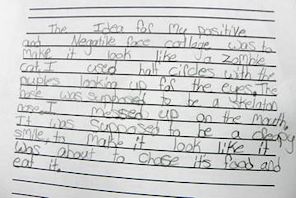 The Idea for My positive
and Negative face collage was to
make it look like a zombie
cat. I used half circles with the
puples looking up for the eyes. The
nose was supposed to be a skelaton
nose. I messed up on the mouth.
It was supposed to be a creepy
smile, to make it look like it
was about to chase it's food and
eat it.